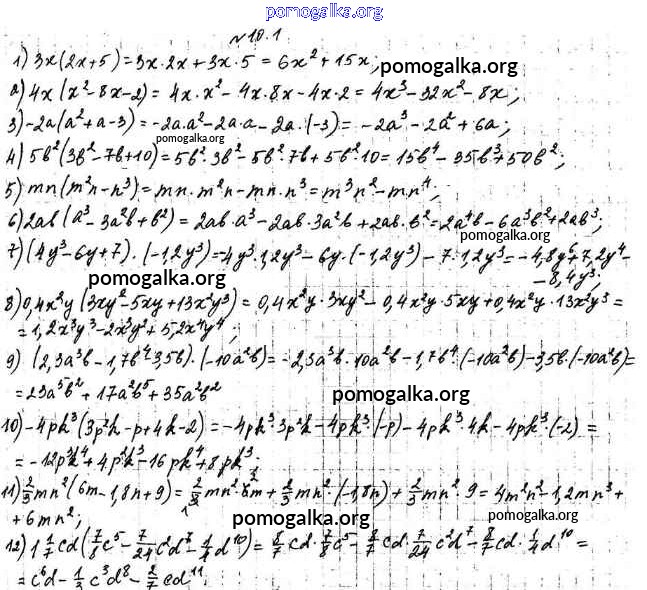 pomogalka.org
№10.1
1) 3x(2x+5)=3x·2x+3x·5=6x²+15x;
pomogalka.org
2) 4x(x²-8x-2)=4x·x²-4x·8x-4x·2=4x³-32x²-8x;
3) -2a(a²+a-3)=-2a·a²-2a·a-2a·(-3)=-2a³-2a²+6a;
pomogalka.org
4) 5b²(3b²-7b+10)=5b²·3b²-5b²·7b+5b²·10=15b⁴-35b³+50b²;
5) mn(m²n-n³)=mn·m²n-mn·n³=m³n²-mn⁴;
6) 2ab(a³-3a²b+b²)=2ab·a³-2ab·3a²b+2ab·b²=2a⁴b-6a³b²+2ab³;
pomogalka.org
7) (4y³-6y+7)·(-1,2y³)=-4y³·1,2y³-6y·(-1,2y³)-7·1,2y³=-4,8y⁶+7,2y⁴-
-8,4y³;
pomogalka.org
8) 0,4x²y(3xy²-5xy+13x²y³)=0,4x²y·3xy²-0,4x²y·5xy+0,4x²y·13x²y³=
=1,2x³y³-2x³y²+5,2x⁴y⁴;
9) (2,3a³b-1,7b⁴-3,5b)·(-10a²b)=-2,3a³b·10a²b-1,7b⁴·(-10a²b)-3,5b·(-10a²b)=
=23a⁵b²+17a²b⁵+35a²b²
pomogalka.org
10) -4pk³(3p²k-p+4k-2)=-4pk³·3p²k-4pk³·(-p)-4pk³·4k-4pk³·(-2)=
=-12p³k⁴+4p²k³-16pk⁴+8pk³.
11) 2/3mn²(6m-1,8n+9)=2/3mn²·6m+2/3mn²·(-1,8n)+2/3mn²·9=4m²n²-1,2mn³+
+6mn²;
pomogalka.org
pomogalka.org
12) 1 1/7cd(7/8c⁵-7/24c²d⁷-1/4d¹⁰)=8/7cd·7/8c⁵-8/7cd·7/24c²d⁷-8/7cd·1/4d¹⁰=
=c⁶d-1/3c³d⁸-2/7cd¹¹